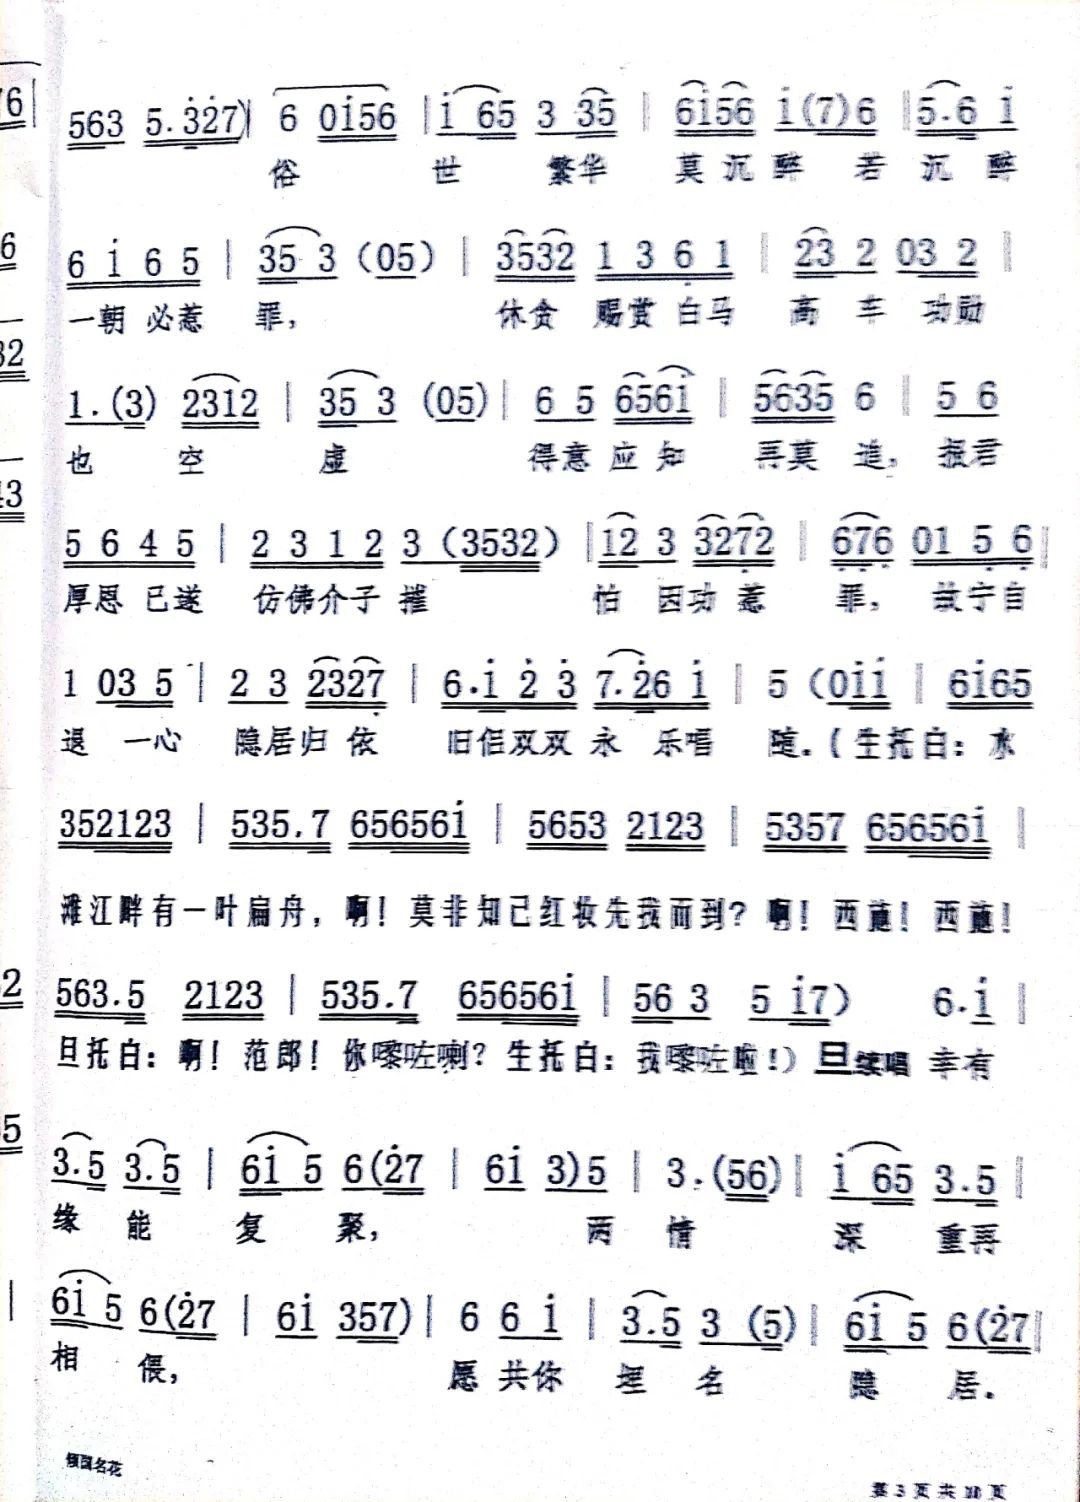 563 5.3̇2̇7) | 6 01̇56 | 1̇ 65 3 35 | 61̇56 1̇(7)6 | 5.6 1̇
俗 世 繁华 莫沉醉 若沉醉
6 1̇ 6 5 | 35 3 (05) | 3532 1 3 6̣ 1 | 23 2 03 2 |
一朝必惹 罪， 休贪 赐赏白马 高车 功勋
1.(3) 2312 | 35 3 (05) | 6 5 6561̇ | 5635 6 | 5 6
也 空 虚 得意应知 再莫 追，报君
5 6 4 5 | 2 3 1 2 3 (3532) | 12 3 327̣2 | 6̣7̣6̣ 01 5̣ 6̣ |
厚恩已遂 仿佛介子摧 怕 因功惹 罪， 故宁自
1 03 5 | 2 3 2327̣ | 6.1̇ 2̇ 3̇ 7.2̇6 1̇ | 5 (01̇1̇ | 61̇65
退 一心 隐居归依 旧侣双双永 乐唱 随.(生托白：水
352123 | 535.7 656561̇ | 5653 2123 | 5357 656561̇ |
滩江畔有一叶扁舟，啊！莫非知己红妆先我而到？啊！西施！西施！
563.5 2123 | 535.7 656561̇ | 56 3 5 1̇7) 6.1̇ |
旦托白：啊！范郎！你嚟咗喇？生托白：我嚟咗啦！）旦续唱 幸有
3.5 3.5 | 61̇ 5 6(2̇7 | 61̇ 3)5 | 3.(56) | 1̇ 65 3.5 |
缘 能 复 聚， 两 情 深 重再
61̇ 5 6(2̇7 | 61̇ 357) | 6 6 1̇ | 3.5 3 (5) | 61̇ 5 6(2̇7 |
相 偎， 愿 共你 埋 名 隐 居.
倾国名花
第 3 页 共 10 页